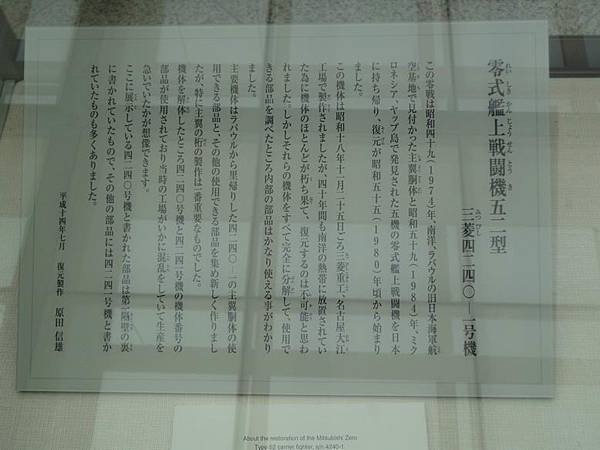 零式艦上戦闘機五二型
れいしきかんじょうせんとうき
三菱四二四〇―一号機
みつびし
この零戦は昭和四十九(1974)年、南洋、ラバウルの旧日本海軍航
空基地で見付かった主翼胴体と昭和五十九(1984)年、ミク
ロネシア、ヤップ島で発見された五機の零式艦上戦闘機を日本
に持ち帰り、復元が昭和五十五(1980)年頃から始まり
ました。
この機体は昭和十八年十一月二十五日ごろ三菱重工、名古屋大江
工場で製作されましたが、四十年間も南洋の熱帯に放置されてい
た為に機体のほとんどが朽ち果て、復元するのは不可能と思わ
れました。しかしそれらの機体をすべて完全に分解して、使用で
きる部品を調べたところ内部の部品はかなり使える事がわかり
ました。
主要機体はラバウルから里帰りした四二四〇―一の主翼胴体の使
用できる部品と、その他の使用できる部品を集め新しく作りまし
たが、特に主翼の桁の製作は一番重要なものでした。
機体を解体したところ四二四〇号機と四二四一号機の機体番号の
部品が使用されており当時の工場がいかに混乱をしていて生産を
急いでいたかが想像できます。
ここに展示している四二四〇号機と書かれた部品は第一隔壁の裏
に書かれていたもので、その他の部品には四二四一号機と書か
れていたものも多くありました。
平成十四年七月 復元製作 原田信雄
About the restoration of the Mitsubishi Zero
Type 52 carrier fighter, s/n 4240-1